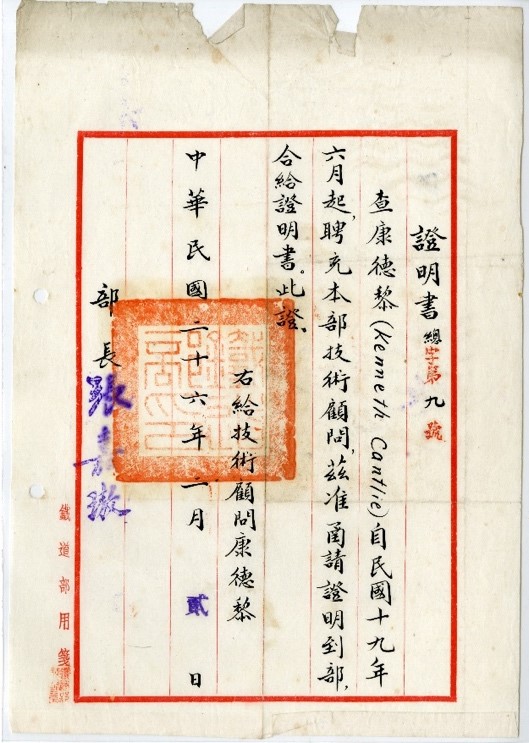 證明書 總字第九號
查康德黎(Kenneth Cantlie)自民國十九年
六月起,聘充本部技術顧問,茲准函請證明到部,
合給證明書。此證。
右給技術顧問康德黎
中華民國二十六年二月貳日
部長張嘉璈
鐵道部用箋